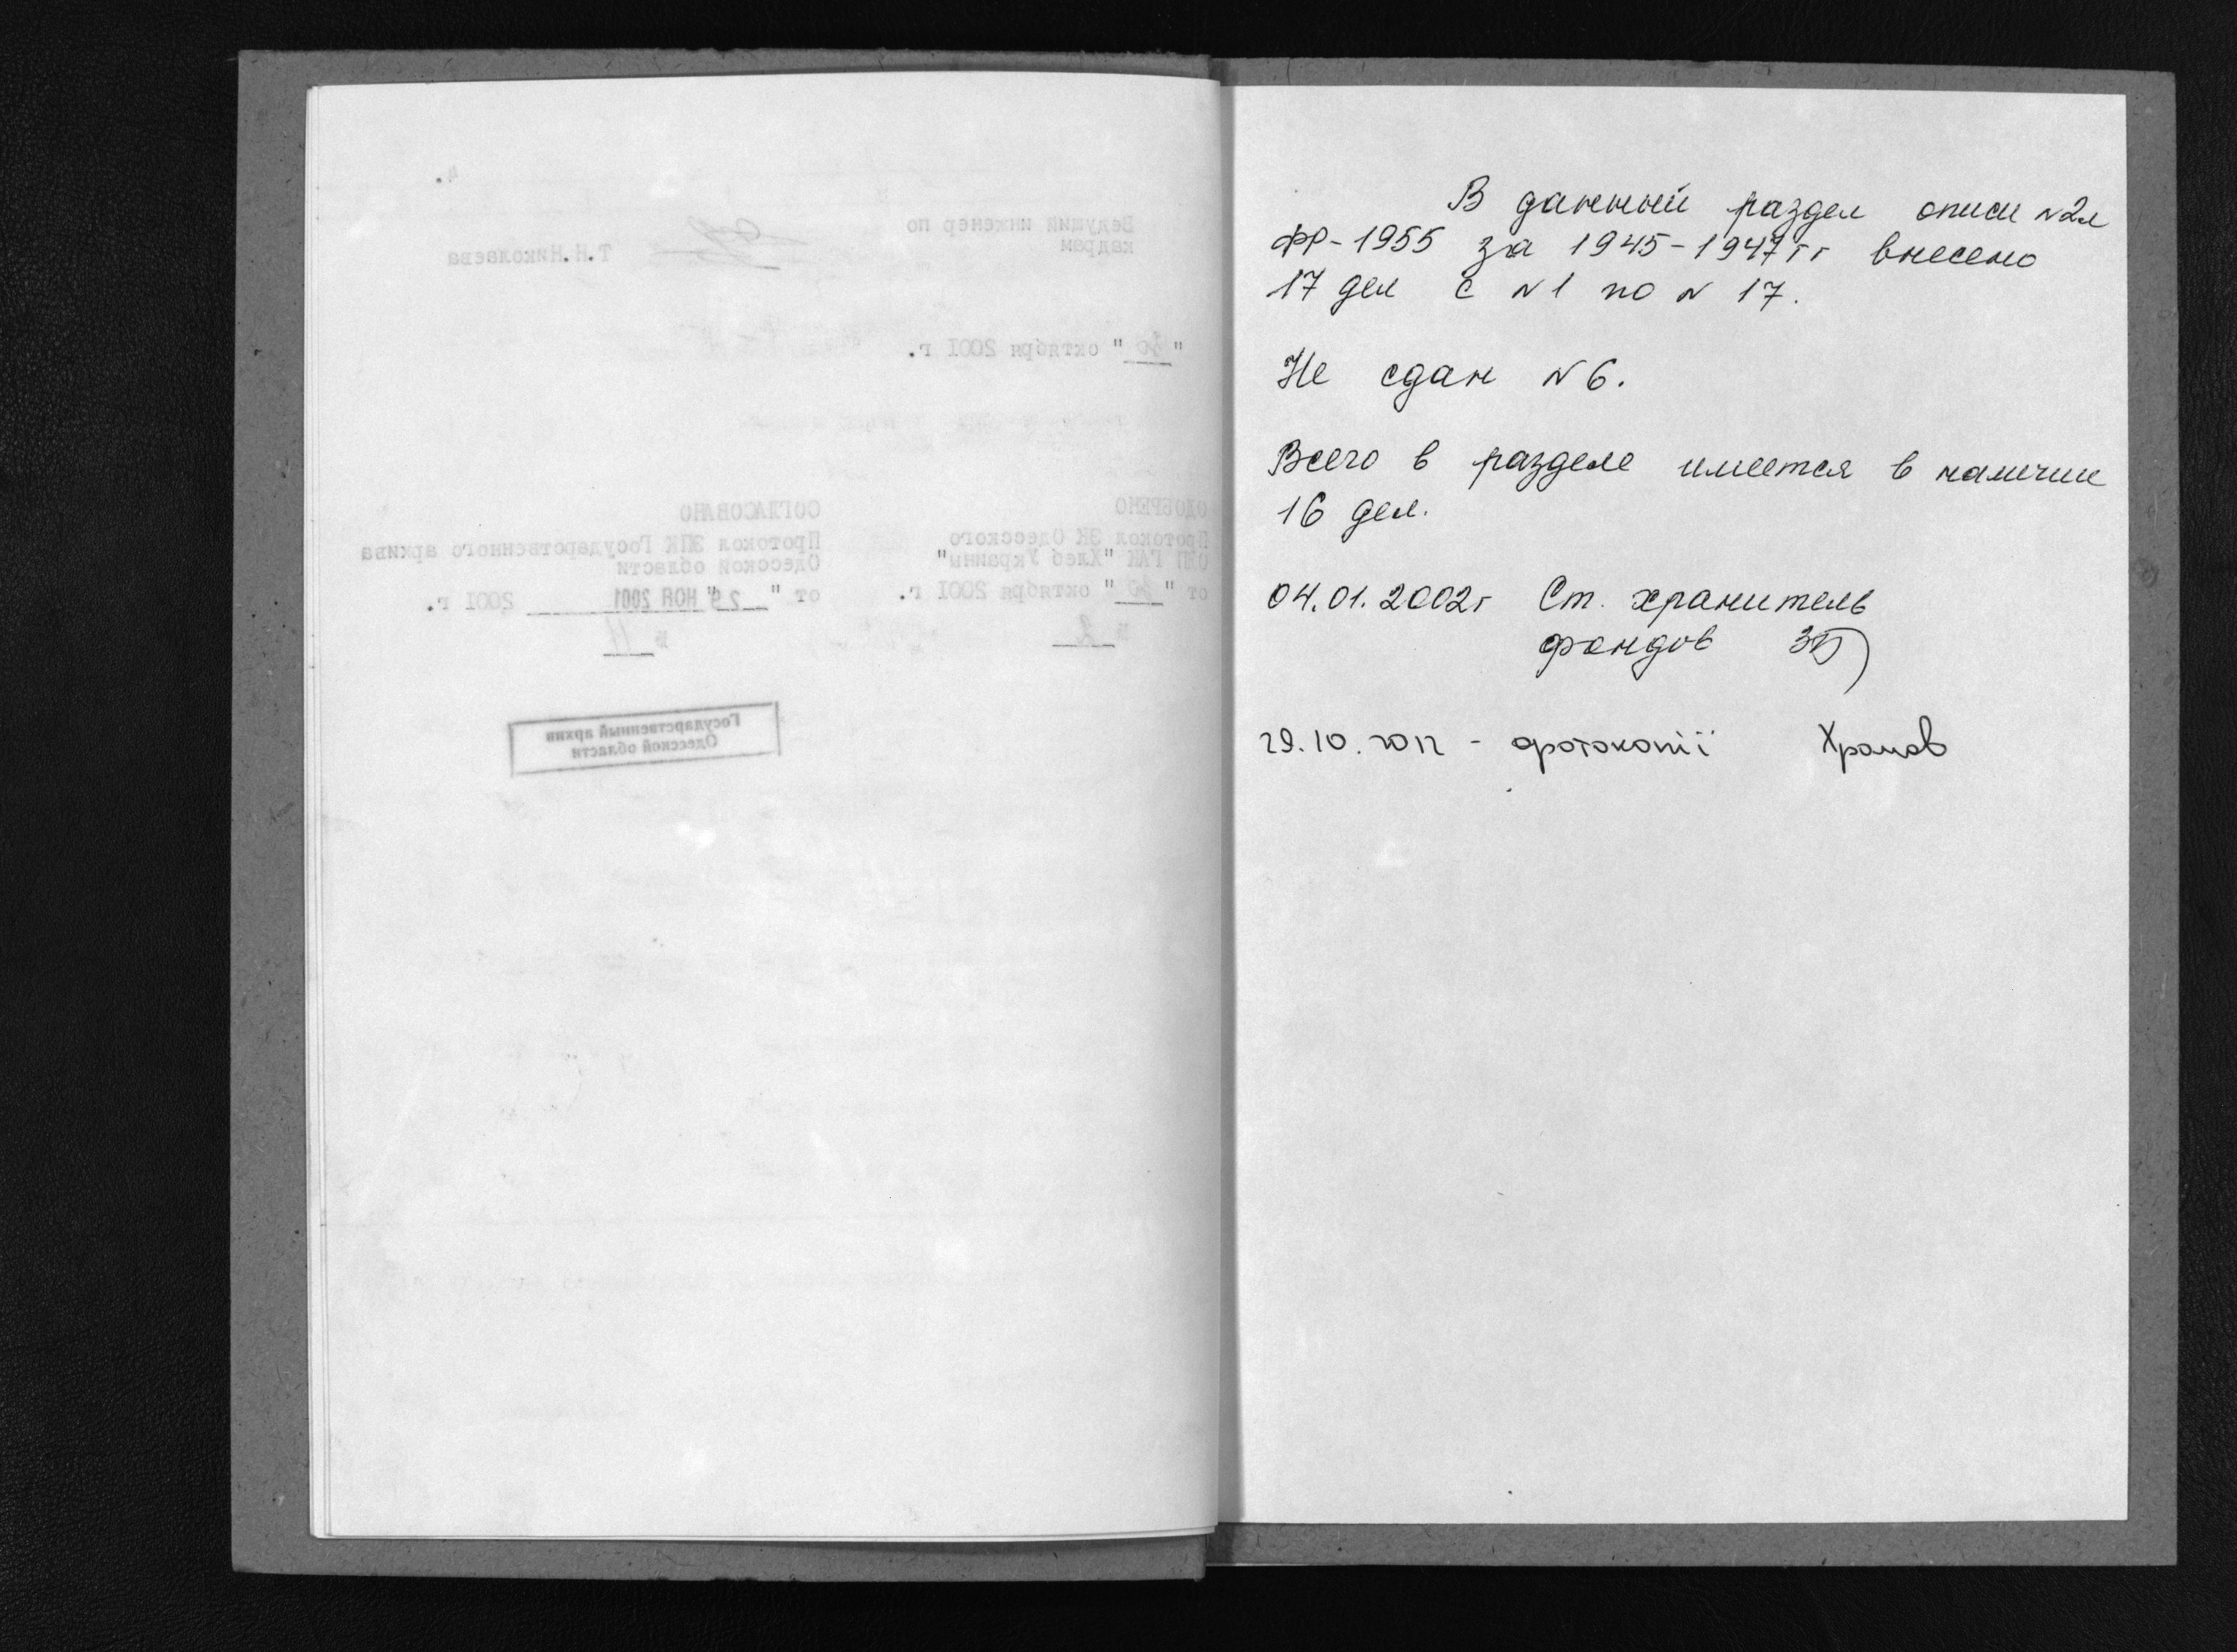 4.
Ведущий инженер по
кадрам
Т.Н.Николаева
"30" октября 2001 г.
ОДОБРЕНО
Протокол ЭК Одесского
ОЛП ГАК "Хлеб Украины"
от "30" октября 2001 г.
№ 2
СОГЛАСОВАНО
Протокол ЭПК Государственного архива
Одесской области
от "29" НОЯ 2001 2001 г.
№ 11
Государственный архив
Одесской области
В данный раздел описи №2л
ФР-1955 за 1945-1947гг внесено
17 дел с №1 по № 17.
Не сдан №6.
Всего в разделе имеется в наличии
16 дел.
04.01.2002г Ст. хранитель
фондов
29.10.2012 - фотокопії Храмов